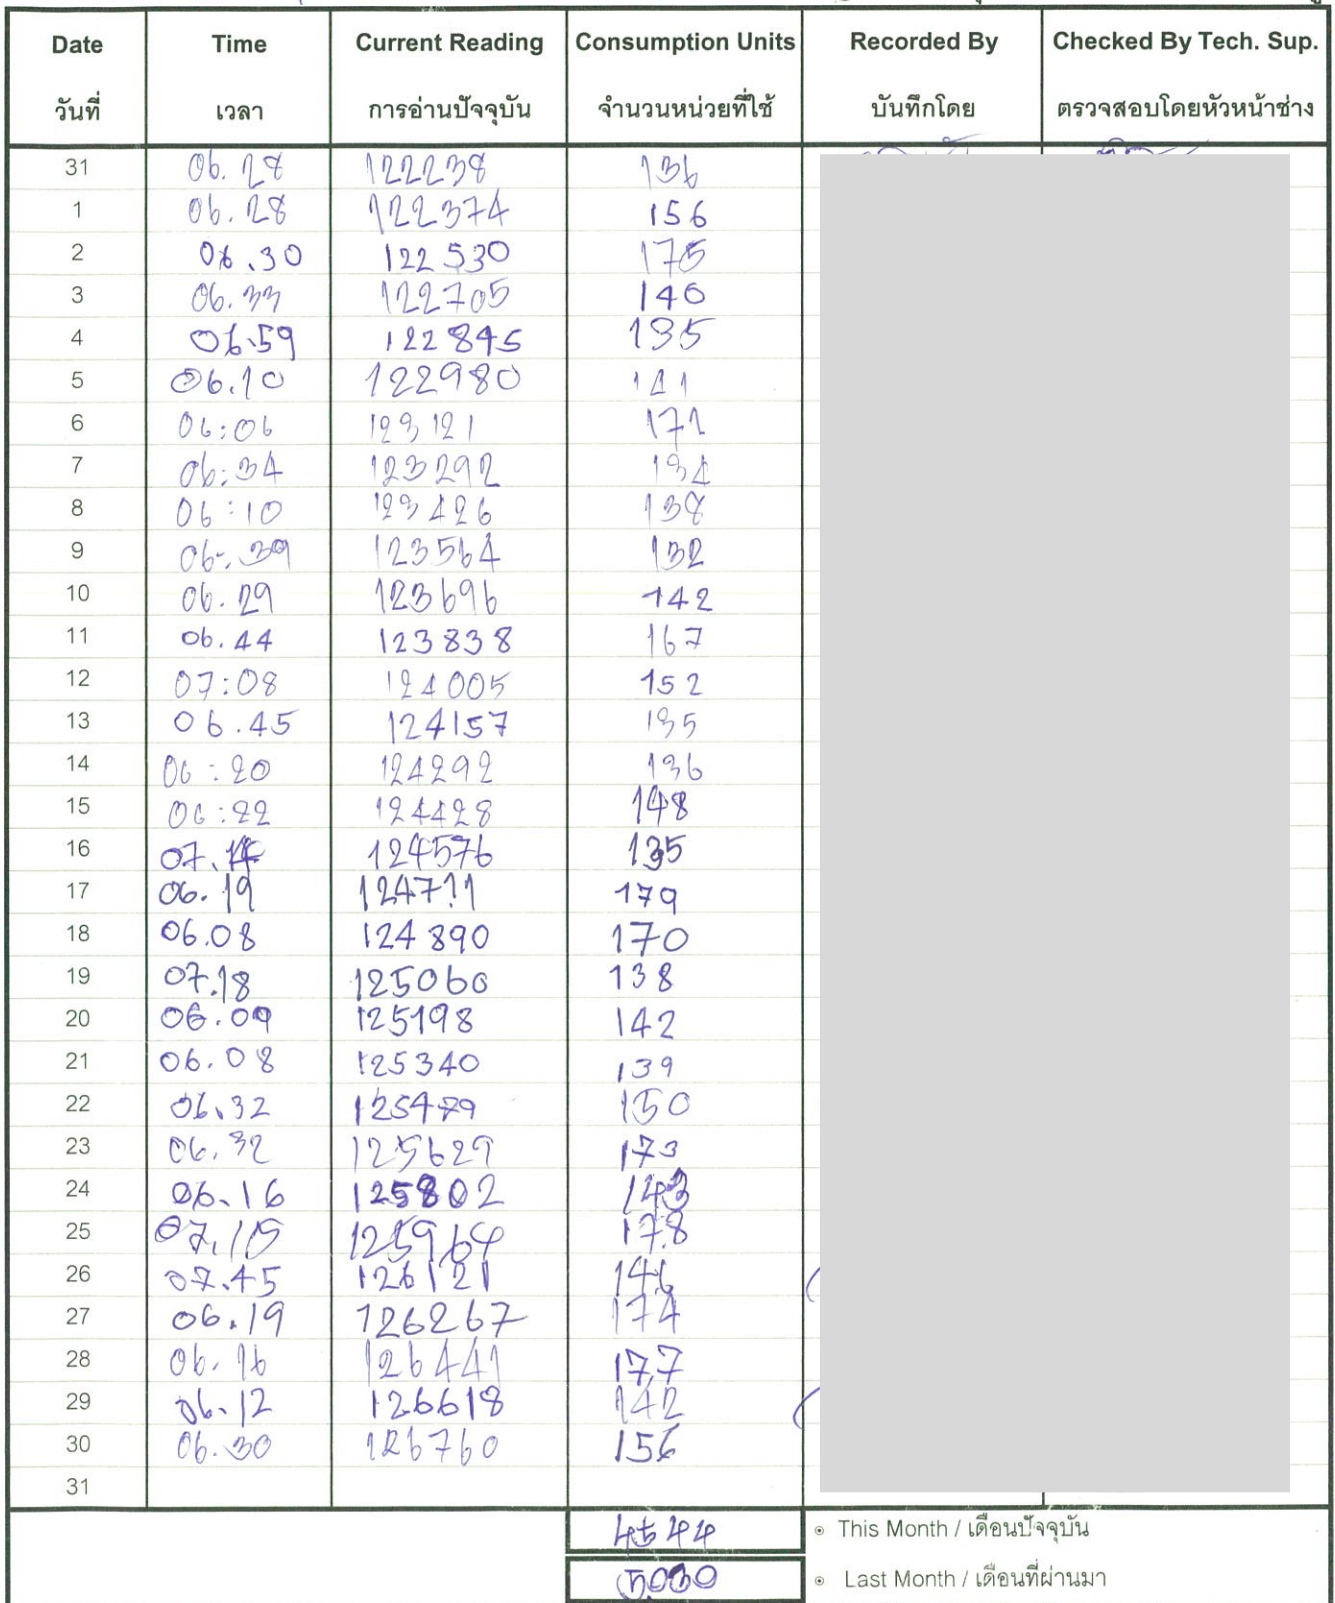 Date Time Current Reading Consumption Units Recorded By Checked By Tech. Sup.
วันที่ เวลา การอ่านปัจจุบัน จำนวนหน่วยที่ใช้ บันทึกโดย ตรวจสอบโดยหัวหน้าช่าง
31 06.28 122238 136
1 06.28 122374 156
2 06.30 122530 175
3 06.33 122705 140
4 06.59 122845 135
5 06.10 122980 141
6 06:06 123121 171
7 06:34 123292 134
8 06:10 123426 138
9 06.39 123564 132
10 06.29 123696 142
11 06.44 123838 167
12 07:08 124005 152
13 06.45 124157 135
14 06:20 124292 136
15 06:22 124428 148
16 07.14 124576 135
17 06.19 124711 179
18 06.08 124890 170
19 07.18 125060 138
20 06.09 125198 142
21 06.08 125340 139
22 06.32 125479 150
23 06.32 125629 173
24 06.16 125802 143
25 07.15 125964 178
26 07.45 126121 146
27 06.19 126267 174
28 06.16 126441 177
29 06.12 126618 142
30 06.30 126760 156
31
4544 This Month / เดือนปัจจุบัน
5030 Last Month / เดือนที่ผ่านมา